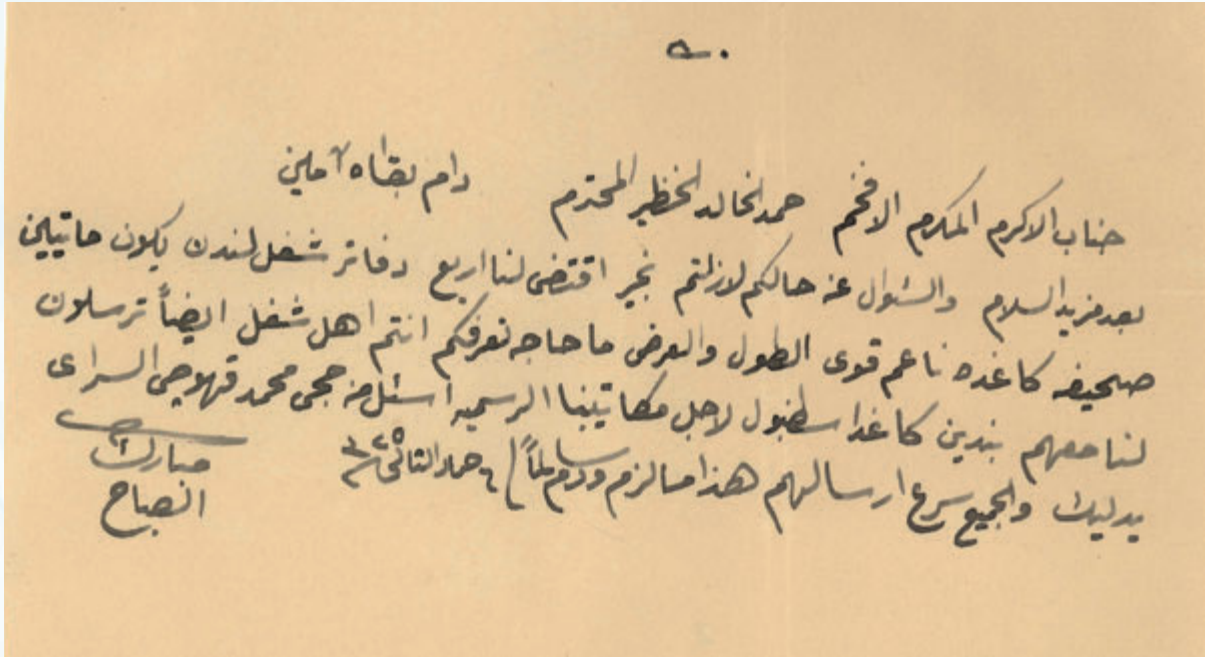 جناب الاكرم المكرم الافخم حمد الخالد الخظير المحترم دام بقاه آمين
بعد مزيد السلام والسئوال عن حالكم لازلتم بخير اقتضى لنا اربع دفاتر شغل لندن يكون مأتين
صحيفه كاغده ناعم قوى الطول والعرض ما حاجه نعرفكم انتم اهل شغل ايضاً ترسلون
لنا معهم بندين كاغد اسطنبول لاجل مكاتيبنا الرسميه اسئل من حجى محمد قهوجى السراى
يدليك والجميع سرع ارسالهم هذا ما لزم ودم سالماً جماد الثاني
مبارك
الصباح